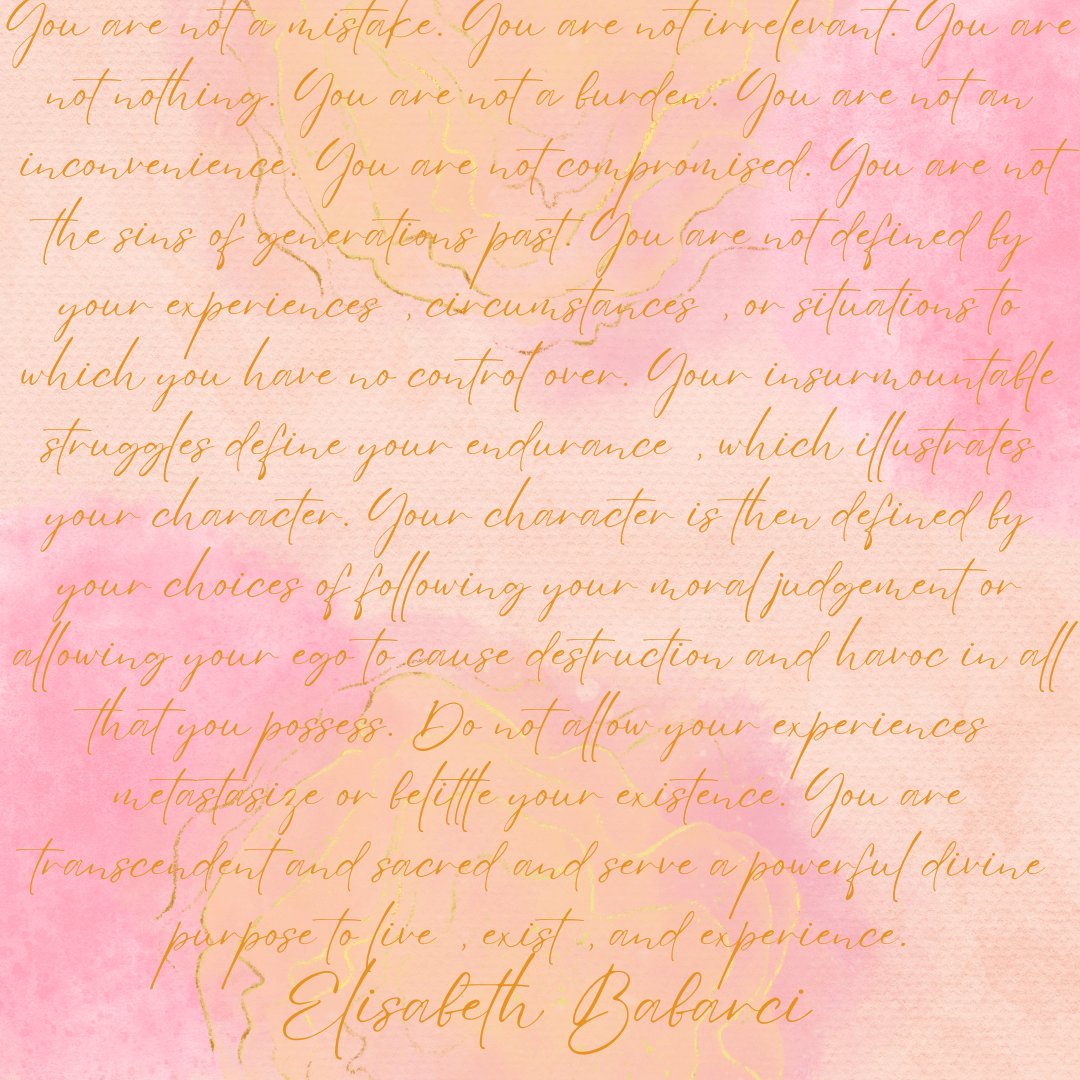 You are not a mistake. You are not irrelevant. You are
not nothing. You are not a burden. You are not an
inconvenience. You are not compromised. You are not
the sins of generations past. You are not defined by
your experiences , circumstances , or situations to
which you have no control over. Your insurmountable
struggles define your endurance , which illustrates
your character. Your character is then defined by
your choices of following your moral judgement or
allowing your ego to cause destruction and havoc in all
that you possess. Do not allow your experiences
metastasize or belittle your existence. You are
transcendent and sacred and serve a powerful divine
purpose to live , exist , and experience.
Elisabeth Babarci